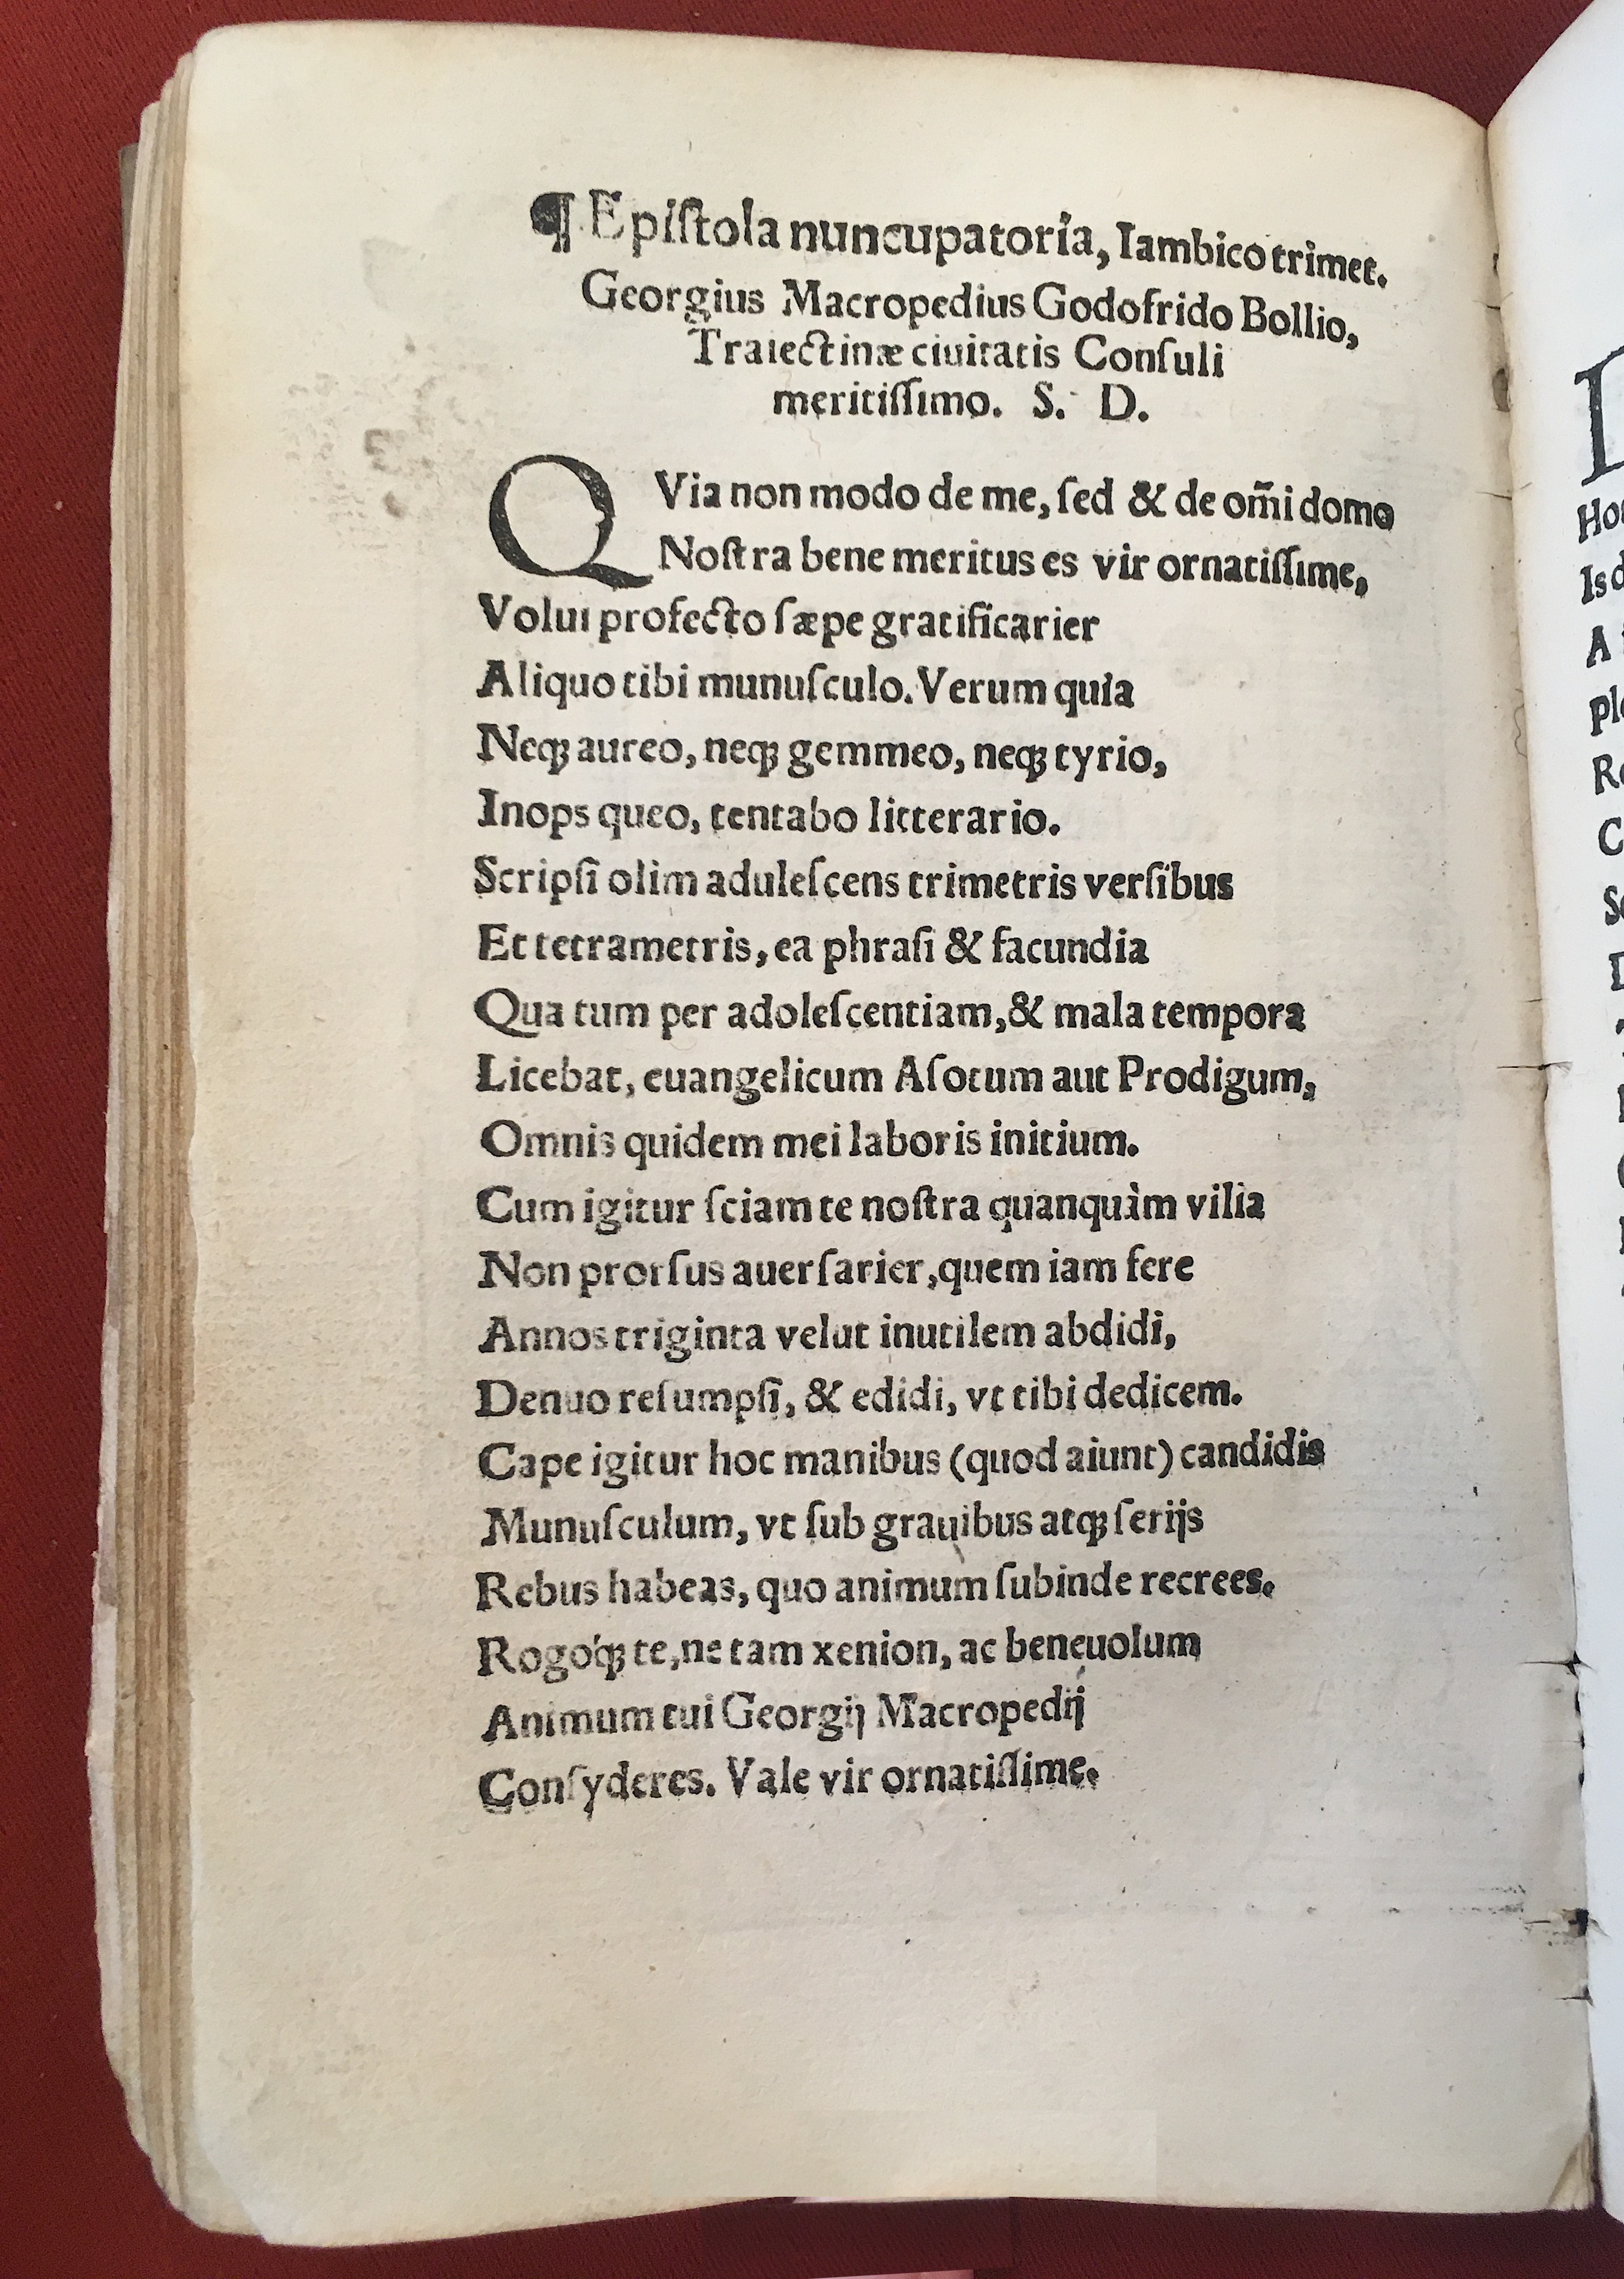 ¶ Epiſtola nuncupatoria, Iambico trimet.
Georgius Macropedius Godofrido Bollio,
Traiectinæ ciuitatis Conſuli
meritiſſimo. S. D.
QVia non modo de me, ſed & de om̃i domo
Noſtra bene meritus es vir ornatiſſime,
Volui profecto ſæpe gratificarier
Aliquo tibi munuſculo. Verum quia
Neqꝫ aureo, neqꝫ gemmeo, neqꝫ tyrio,
Inops queo, tentabo litterario.
Scripſi olim aduleſcens trimetris verſibus
Et tetrametris, ea phraſi & facundia
Qua tum per adoleſcentiam, & mala tempora
Licebat, euangelicum Aſotum aut Prodigum,
Omnis quidem mei laboris initium.
Cum igitur ſciam te noſtra quanquàm vilia
Non prorſus auerſarier, quem iam fere
Annos triginta velut inutilem abdidi,
Denuo reſumpſi, & edidi, vt tibi dedicem.
Cape igitur hoc manibus (quod aiunt) candidis
Munuſculum, vt ſub grauibus atqꝫ ſerijs
Rebus habeas, quo animum ſubinde recrees.
Rogóqꝫ te, ne tam xenion, ac beneuolum
Animum tui Georgij Macropedij
Conſyderes. Vale vir ornatiſſime.
Ho
Is d
A
Pl
R
C
S